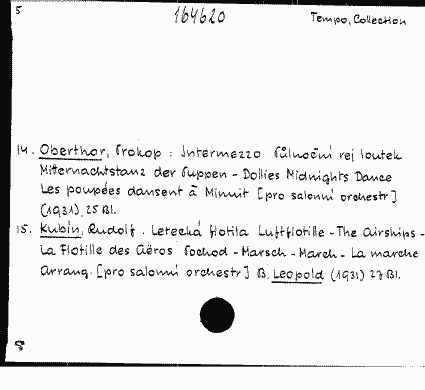 5
164620
Tempo, Collection
14. Oberthor, Prokop : Intermezzo Půlnoční rej loutek
Mitternachtstanz der Puppen - Dollies Midnights Dance
Les poupées dansent à Minuit [pro salonní orchestr]
(1931), 25 Bl.
15. Kubín, Rudolf . Letecká flotila Luftflotille - The Airships -
La Flotille des Aëros Pochod - Marsch - March - La marche
Arrang. [pro salonní orchestr] B. Leopold (1931) 27 Bl.